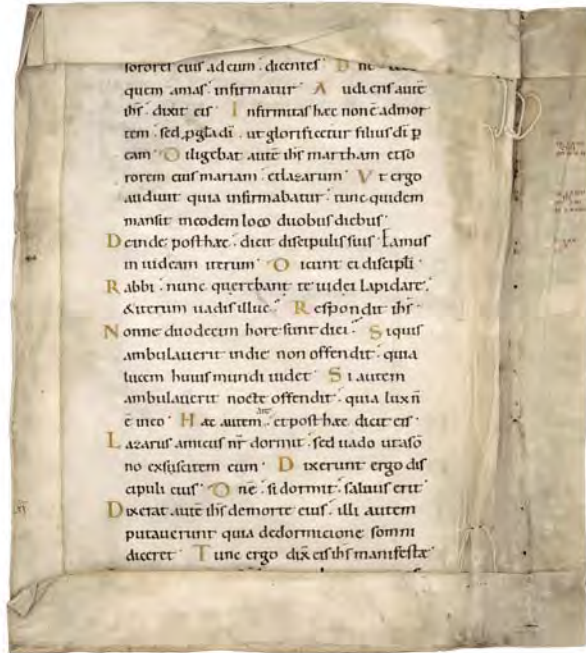 sorores eius ad eum. dicentes. Dñe
quem amas infirmatur. Audiens autē
ihs. dixit eis. Infirmitas hæc non ē ad mor
tem. sed p glā dī. ut glorificetur filius dī p
eam. Diligebat autē ihs martham et so
rorem eius mariam. et lazarum. Vt ergo
audiuit quia infirmabatur. tunc quidem
mansit in eodem loco duobus diebus.
Deinde post hæc. dicit discipulis suis. Eamus
in iudeam iterum. Dicunt ei discipli.
Rabbi. nunc querebant te iudei lapidare.
& iterum uadis illuc. Respondit ihs.
Nonne duodecim hore sunt diei. Siquis
ambulauerit in die non offendit. quia
lucem huius mundi uidet. Si autem
ambulauerit nocte offendit. quia lux ñ
ē in eo. Hæc autem. et post hæc dicit eis.
Lazarus amicus nr̄ dormit. sed uado ut a sō
no exsuscitem eum. Dixerunt ergo dis
cipuli eius. Dnē. si dormit. saluus erit.
Dixerat autē ihs de morte eius. illi autem
putauerunt quia de dormicione somni
diceret. Tunc ergo dix̄ eis ihs manifestæ